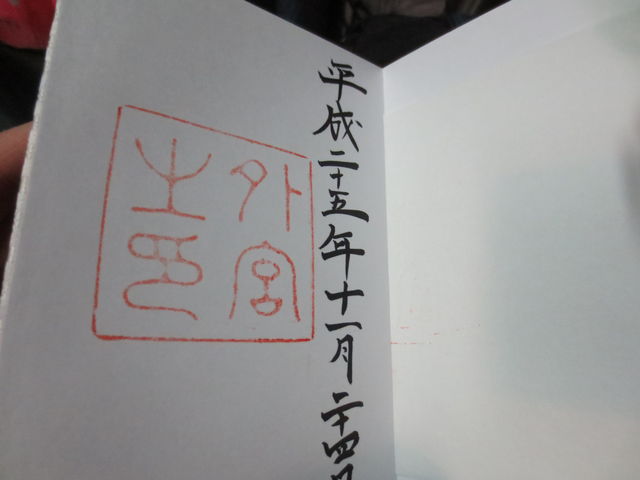 平成二十五年十一月二十四日
外宮
之印